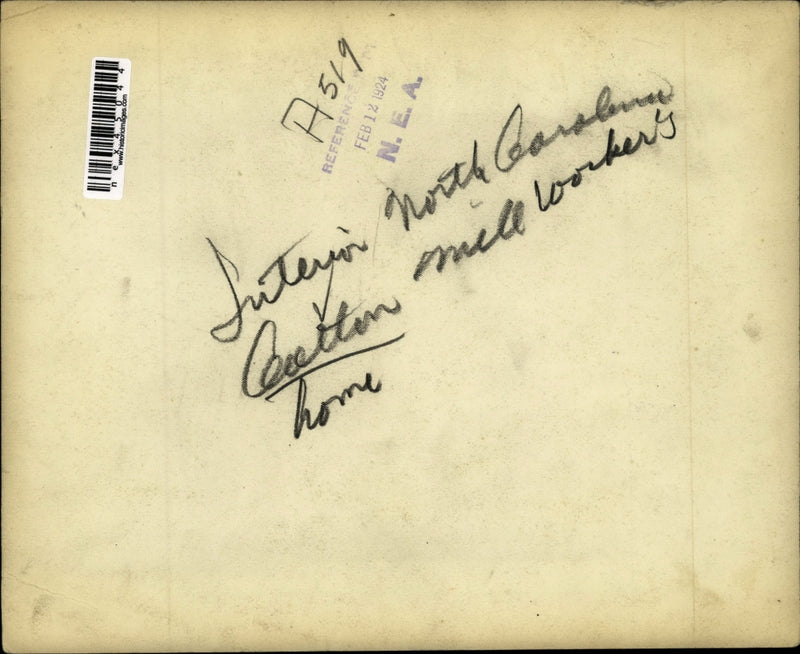 A519
REFERENCE
FEB 12 1924
N. E. A.
www.historicimages.com
nex45044
Interior North Carolina
Cotton mill worker's
home